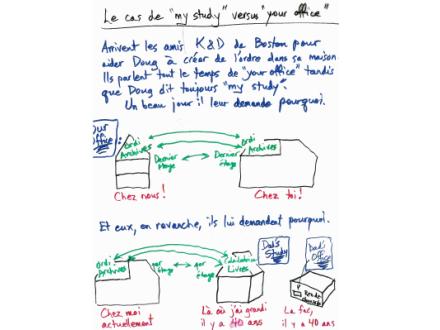 Le cas de "my study" versus "your office"
Arrivent les amis K&D de Boston pour
aider Doug à créer de l'ordre dans sa maison.
Ils parlent tout le temps de "your office" tandis
que Doug dit toujours "my study".
Un beau jour il leur demande pourquoi.
Our
Office:
Ordi
Archives
Ordi
Archives
Dernier
étage
Dernier
étage
Chez nous!
Chez toi!
Et eux, en revanche, ils lui demandent pourquoi.
Ordi
Archives
1er
étage
1er
étage
Livres
Dad's
Study
Dad's
Office
Chez moi
actuellement
Là où j'ai grandi
il y a 40 ans
La fac,
il y a 40 ans